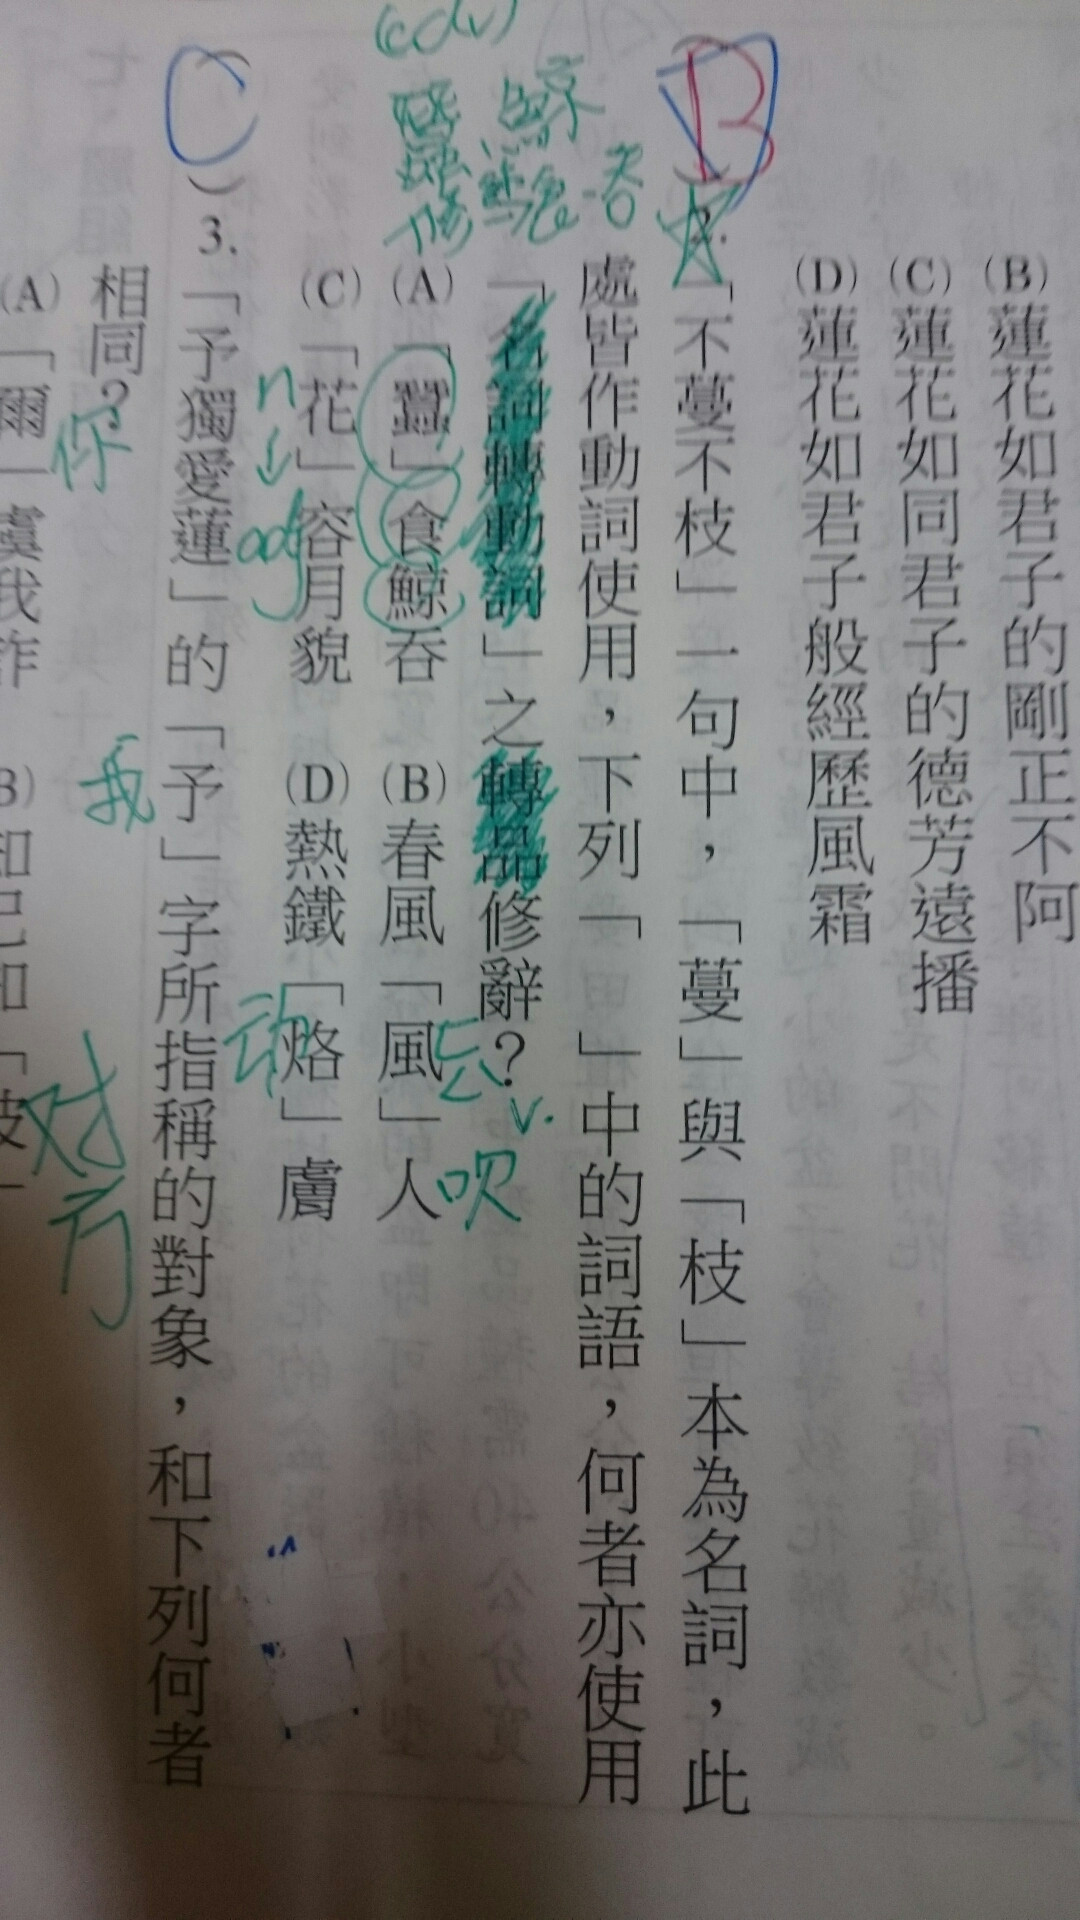 (B)蓮花如君子的剛正不阿
(C)蓮花如同君子的德芳遠播
(D)蓮花如君子般經歷風霜
B
)2.「不蔓不枝」一句中，「蔓」與「枝」本為名詞，此
處皆作動詞使用，下列「 」中的詞語，何者亦使用
「名詞轉動詞」之轉品修辭？
(A)「蠶」食鯨吞 (B)春風「風」人
(C)「花」容月貌 (D)熱鐵「烙」膚
(adv)
鯨
吞
n
↓
adj
v.
吹
動
C
)3.「予獨愛蓮」的「予」字所指稱的對象，和下列何者
相同？
我
(A)「爾」虞我詐 (B)知己知「彼」
你
对方